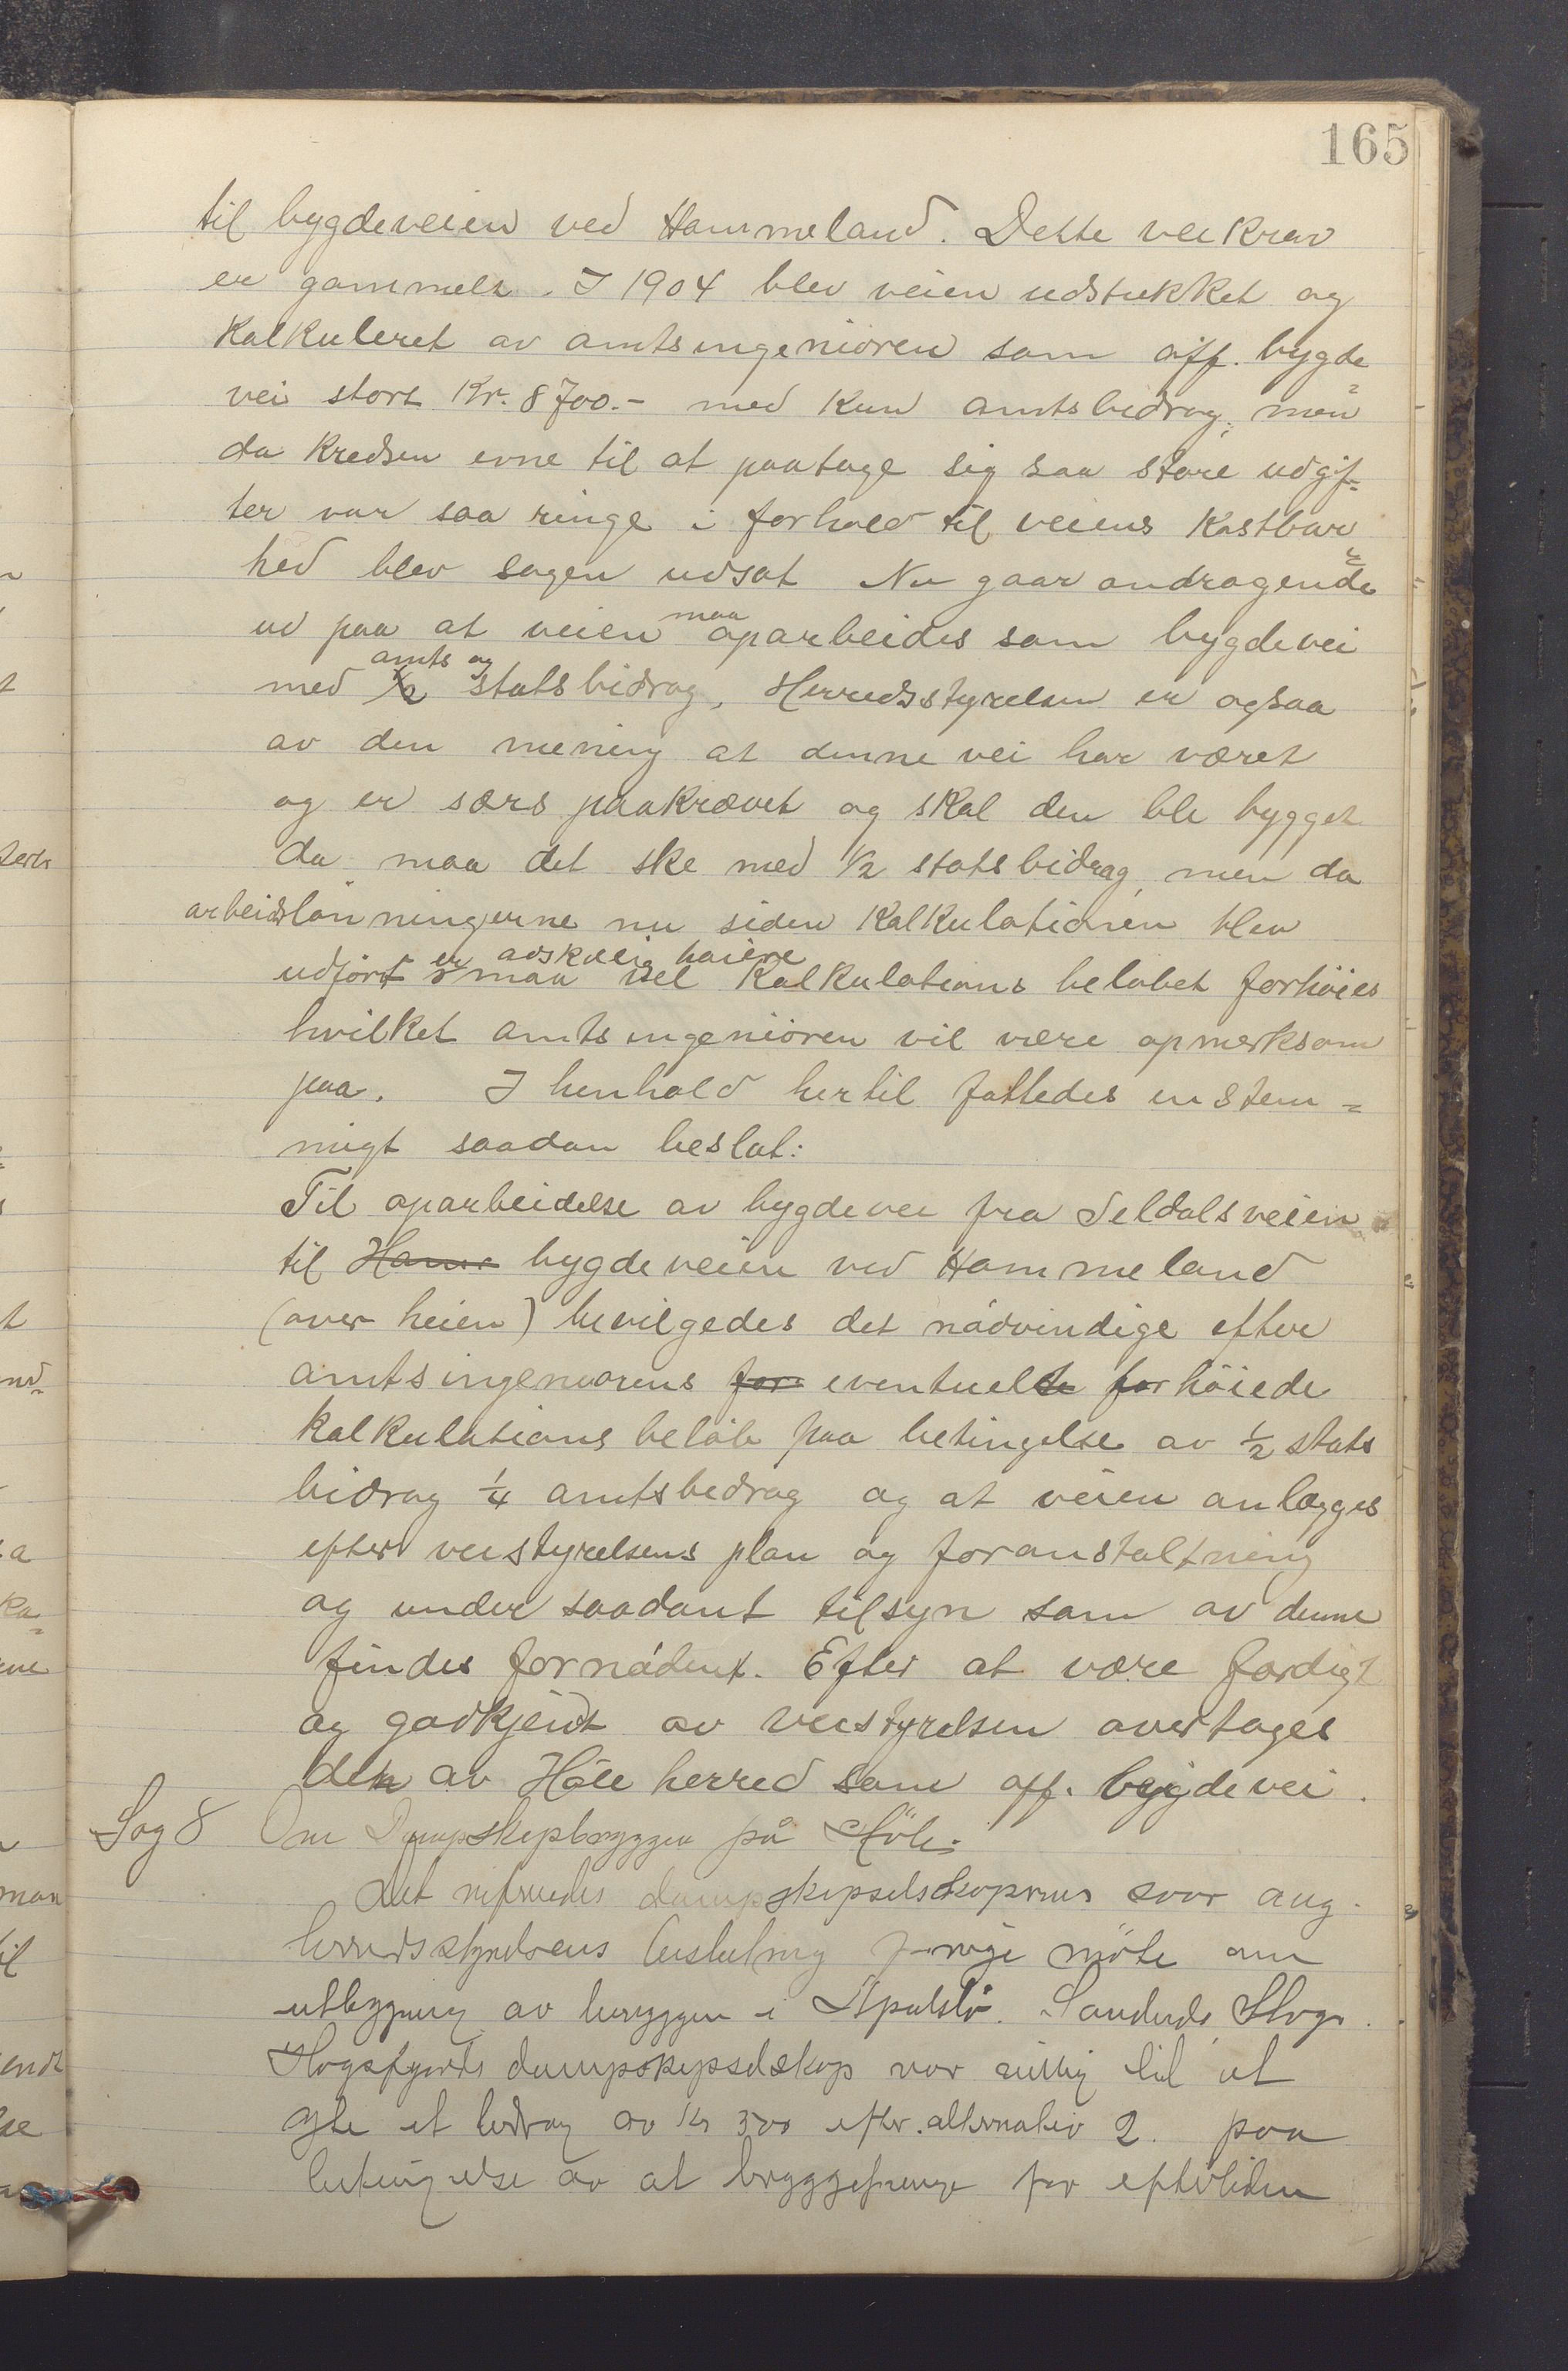 165
til bygdeveien ved Hammeland. Dette veikrav
er gammelt. I 1904 blev veien udstukket og
kalkuleret av amtsingeniören som off. bygde
vei stort Kr. 8700.- med kun amtsbidrag; men
da kredsen evne til at paatage sig saa store udgif=
ter var saa ringe i forhold til veiens kostbar=
hed blev sagen udsat Nu gaar andragende
ud paa at veien maa oparbeides som bygdevei
med ½ amts og statsbidrag, Herredsstyrelsen er ogsaa
av den mening at denne vei har været
og er særs paakrævet og skal den ble bygget
da maa det ske med ½ statsbidrag, men da
arbeidslönningerne nu siden kalkulationen blev
udfört er adskilig høiere maa vel kalkulations beløbet forhöies
hvilket amtsingeniören vil være opmerksom
paa. I henhold hertil fattedes enstem=
migt saadan beslut:
Til oparbeidelse av bygdevei fra Seldalsveien
til Hamm bygdeveien ved Hammeland
(over heien) bevilgedes det nödvendige efter
amtsingeniørens for eventuelte forhöiede
kalkulations belöb paa betingelse av ½ stats
bidrag ¼ amtsbedrag og at veien anlægges
efter veistyrelsens plan og foranstaltning
og under saadant tilsyn som av denne
findes fornödent. Efter at være færdigt
og godkjendt av veistyrelsen overtages
den av Höle herred som off. bygdevei.
Sag 8 Om Dampskipbryggen på Höle.
Det refereredes dampskipselskapernes svar ang.
herredsstyrelsens beslutning forrige möte om
utbygning av bryggen i Apalstö. Sandnes
Högsfjords dampskipsselskap var villig til at
yte et bedrag av Kr 300 efter alternativ 2. paa
betingelse av at bryggepenge for eftertiden